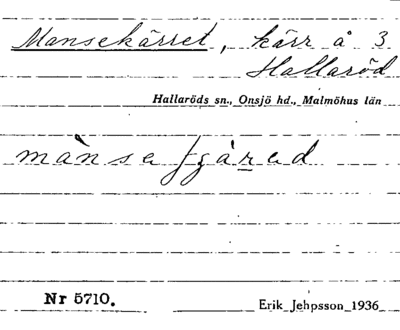 Mansekärret, kärr å 3
Hallaröd
Hallaröds sn., Onsjö hd., Malmöhus län
Nr 5710.
Erik Jehpsson 1936